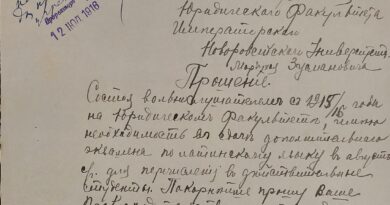 12 ИЮЛ 1916
Юридическаго Факультета
Императорскаго
Новороссійскаго Университета
Прошеніе.
Состоя вольнослушателем с 1915/16 года
на Юридическом Факультете, имею
необходимость сдать дополнительнаго
экзамена по латинскому языку в августе
с/г для перехода в действительные
студенты. Покорнейше прошу Ваше